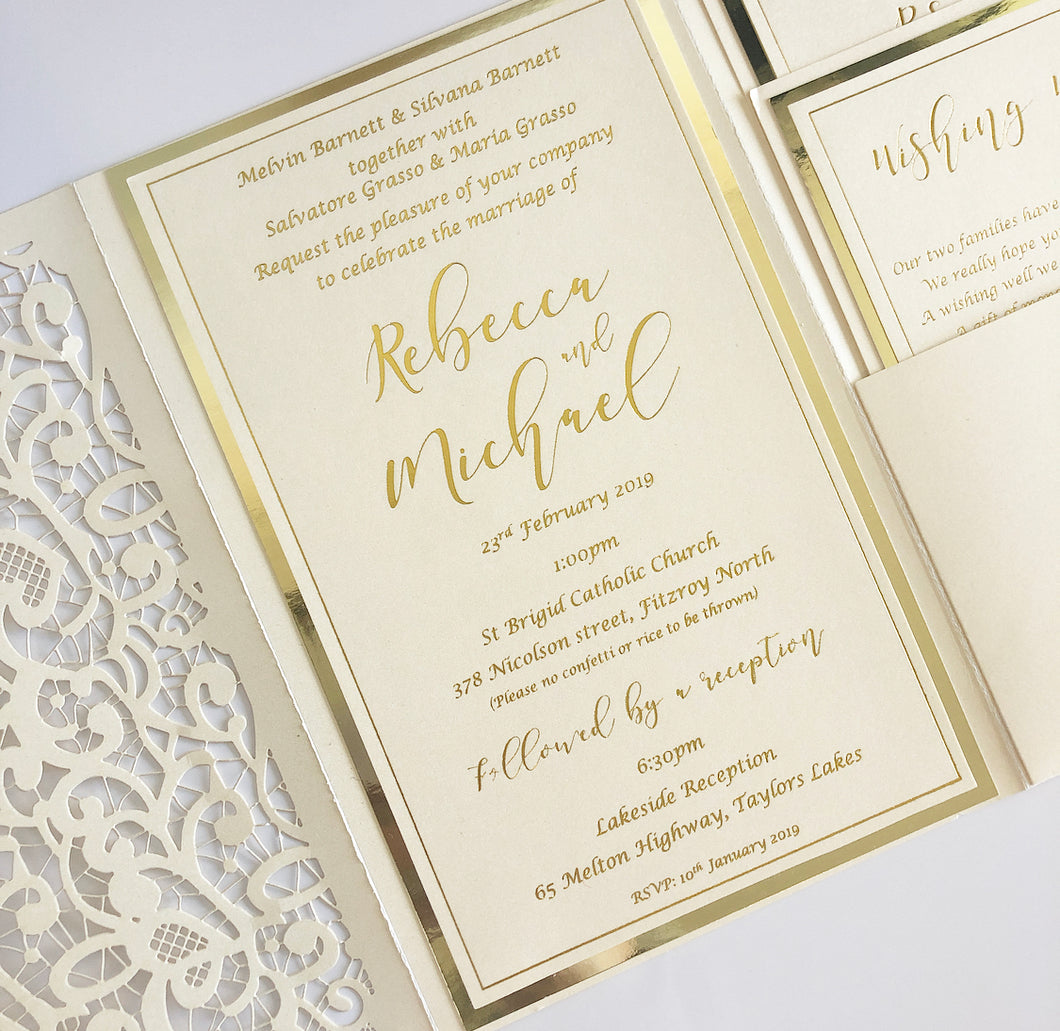 Melvin Barnett & Silvana Barnett
together with
Salvatore Grasso & Maria Grasso
Request the pleasure of your company
to celebrate the marriage of
Rebecca
and
Michael
23rd February 2019
1:00pm
St Brigid Catholic Church
378 Nicolson street, Fitzroy North
(Please no confetti or rice to be thrown)
Followed by a reception
6:30pm
Lakeside Reception
65 Melton Highway, Taylors Lakes
RSVP: 10th January 2019
Wishing
Our two families have
We really hope you
A wishing well we
A gift of